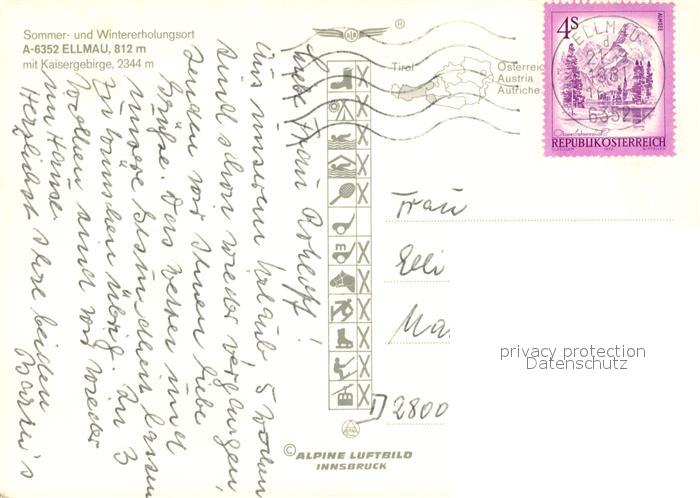 Sommer- und Wintererholungsort
A-6352 ELLMAU, 812 m
mit Kaisergebirge, 2344 m
®
Tirol
Österreich
Austria
Autriche
4S
ALMSEE
ELLMAU
6352
REPUBLIK ÖSTERREICH
Frau
Elli
Ma
D 2800
privacy protection
Datenschutz
© ALPINE LUFTBILD
INNSBRUCK
Liebe Frau
Aus unserem Urlaub, 5 Wochen
sind schon wieder vergangen,
senden wir Ihnen liebe
Grüße. Das Wetter und
unsere Gesundheit lassen
zu wünschen übrig. In 3
Wochen sind wir wieder
zu Hause
Herzlichst Ihre beiden